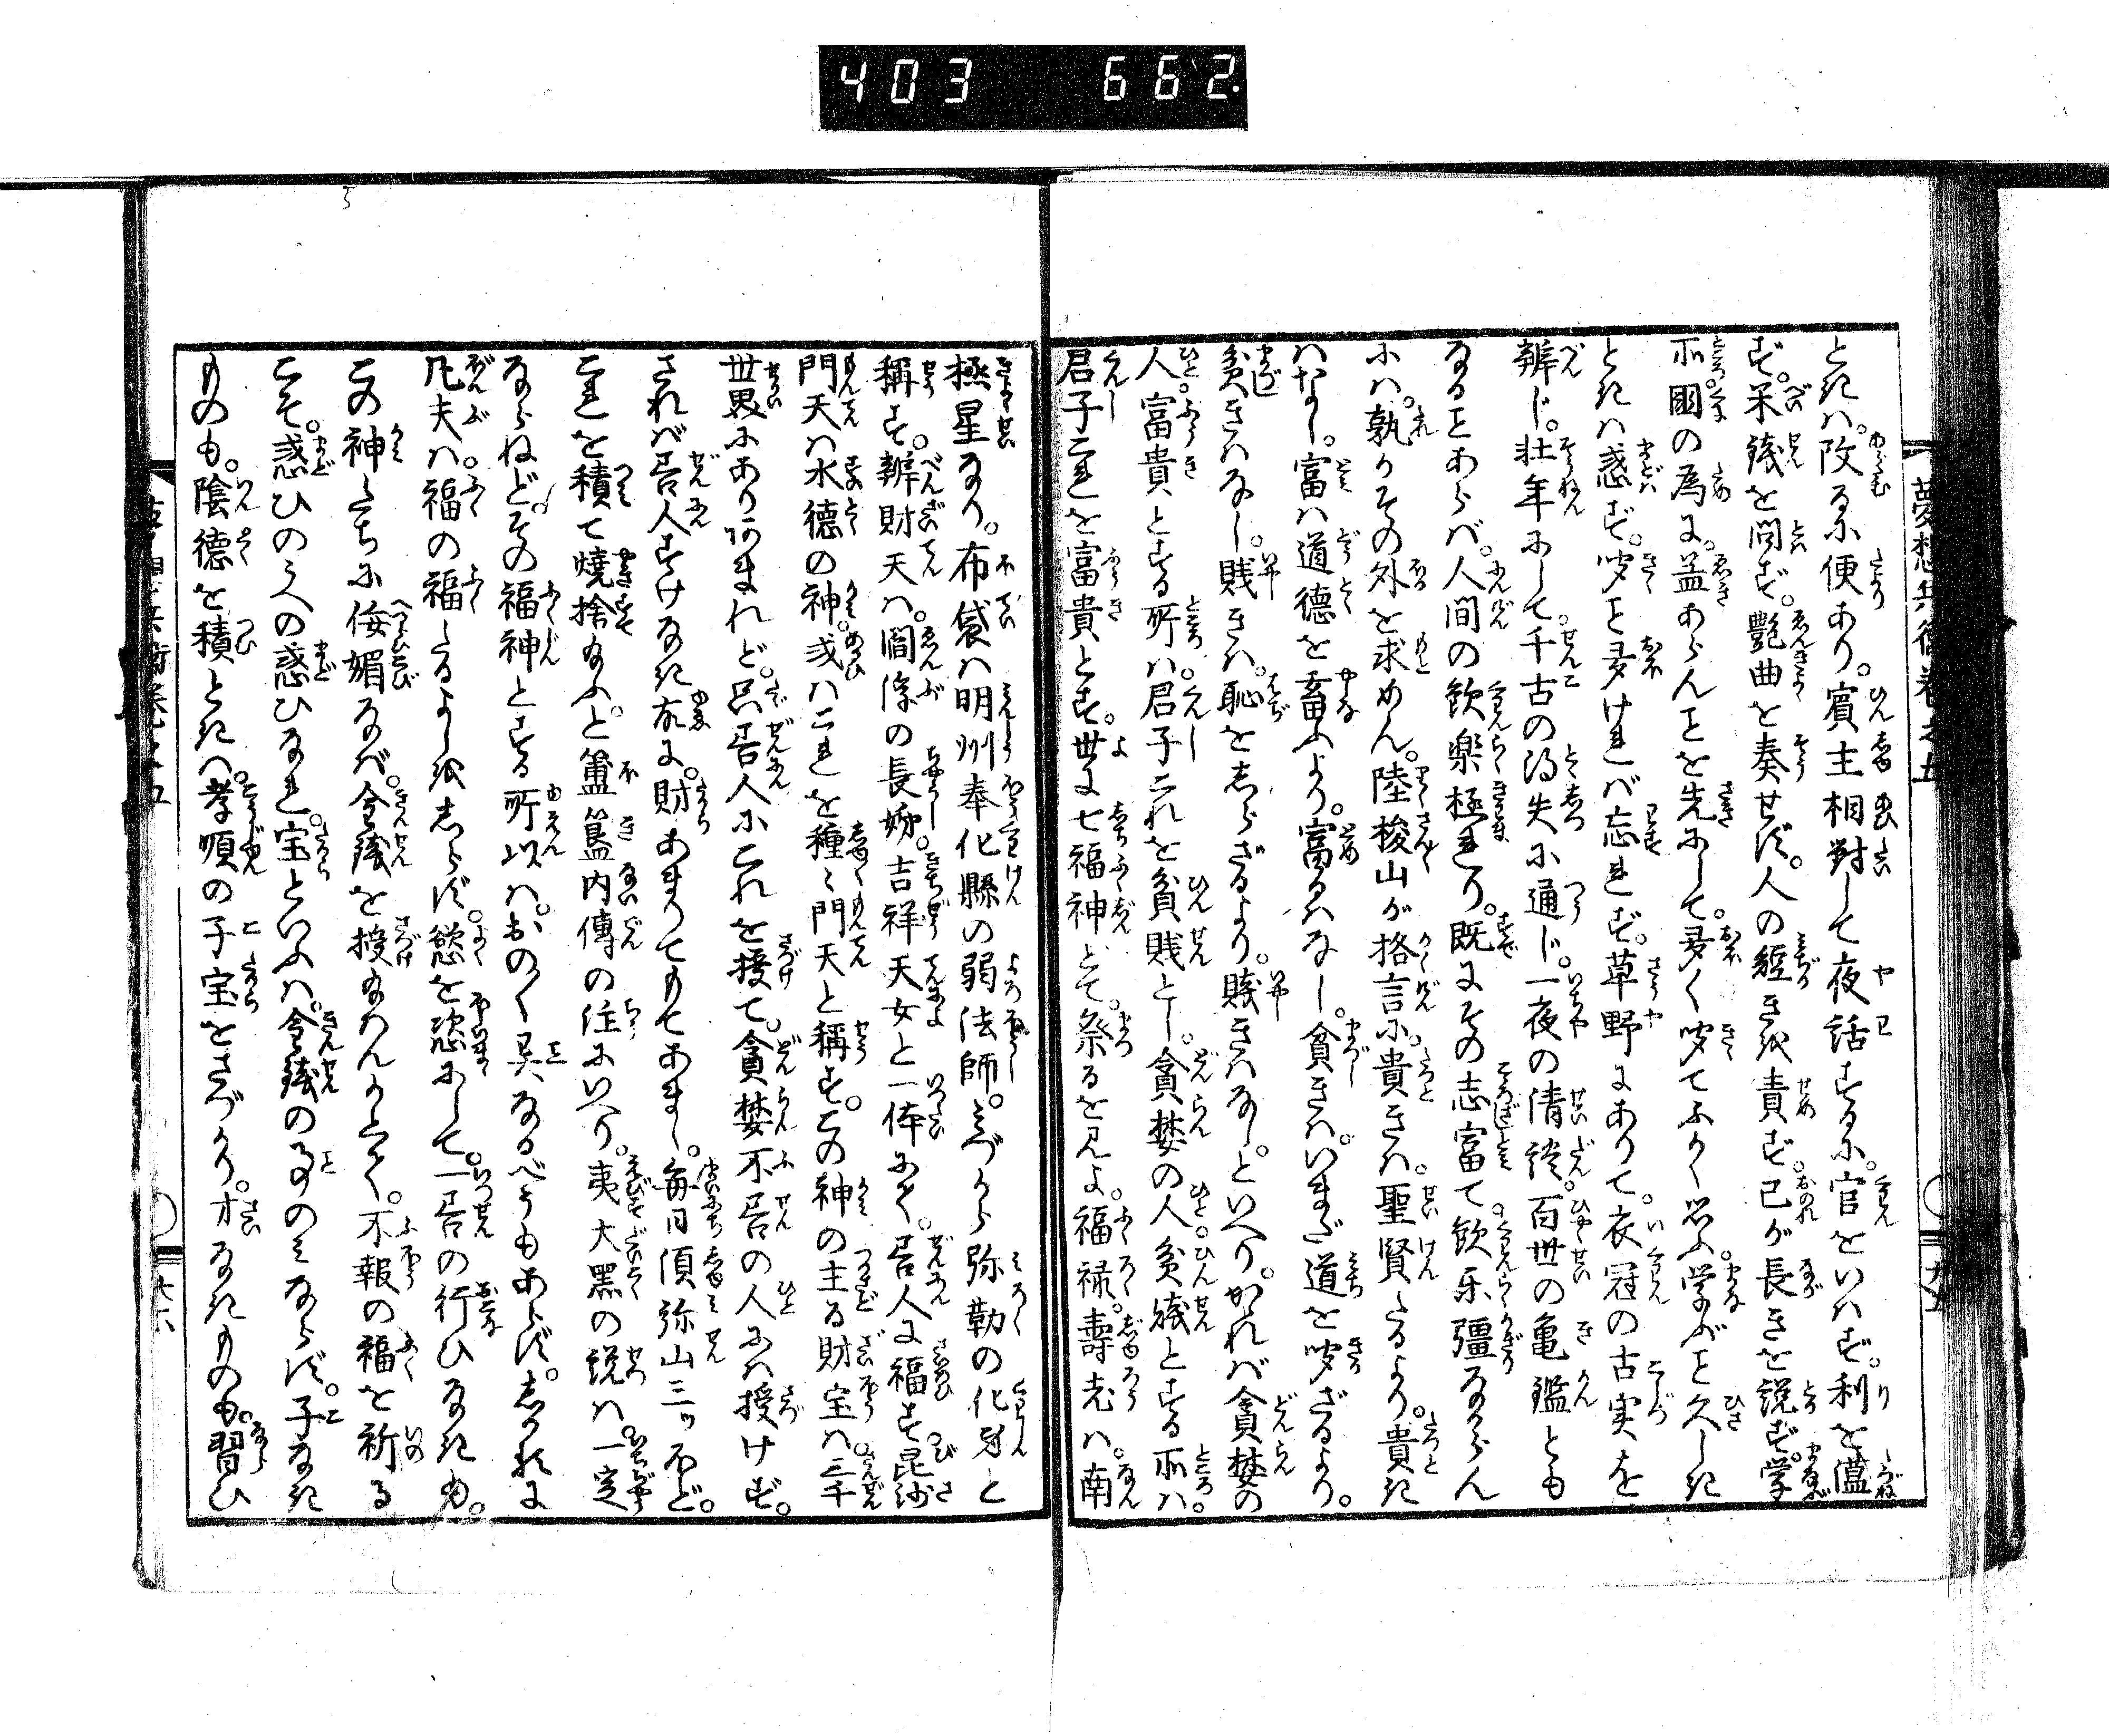 403 662
夢想兵衛巻之五
十九
ときハ。改るに便あり。賓主相對して夜話するに。官をいはず。利を薀
ず。米錢を問ず。艶曲を奏せず。人の短きを責ず。己が長きを説ず。学
ぶ所國の為に。益あらんことを先にして。多く聞てふかく思ふ。学ぶこと久しき
ときハ惑ず。聞こと多ければ忘れず。草野にありて。衣冠の古実を
辨じ。壮年にして。千古の得失に通じ。一夜の清談。百世の亀鑑とも
なることあらバ。人間の歓楽極れり。既にその志富て。歓乐彊なからん
にハ。孰かその外を求めん。陸梭山が格言に。貴きハ。聖賢たるより。貴き
ハなし。富ハ道徳を畜ふより。富るハなし。貧きハ。いまだ道を聞ざるより。
貧きハなし。賎きハ。恥をしらざるより。賎きハなし。といへり。かれバ貪婪の
人。富貴とする所ハ。君子これを貧賎とし。貪婪の人。貧賎とする所ハ。
君子これを富貴とす。世に七福神とて。祭るを見よ。福禄。壽老ハ。南
極星なり。布袋ハ明州奉化縣の弱法師。みづから弥勒の化身と
稱す。辨財天ハ。閻浮の長姉。吉祥天女と一体にて。善人に福す毘沙
門天ハ水徳の神。或ハこれを種〻門天と稱す。この神の主る財宝ハ。三千
世界にあり。あまれど。只善人にこれを授て。貪婪不善の人にハ授けず。
されバ善人すけなき故に。財あまりてもてあまし。毎日須弥山三ッほど。
これを積て燒捨給ふ。と簠簋内傳の注にいへり。夷大黒の説ハ。一定
ならねど。その福神とする所以ハ。おの〳〵異なるべうもあらず。しかるに
凡夫ハ。福の福たるよしをしらず。慾を恣にして。一善の行ひなきも。
この神たちに侫媚なバ。金錢を授給はんかとて。不報の福を祈る
こそ。惑ひのうへの惑ひなれ。宝といふハ。金錢の事のみならず。子なき
ものも。陰徳を積ときハ。孝順の子宝をさづかり。才なきものも。習ひ